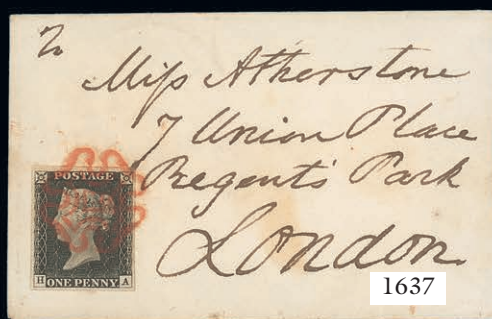 Miss Atherstone
7 Union Place
Regent's Park
London
POSTAGE
H ONE PENNY A
1637